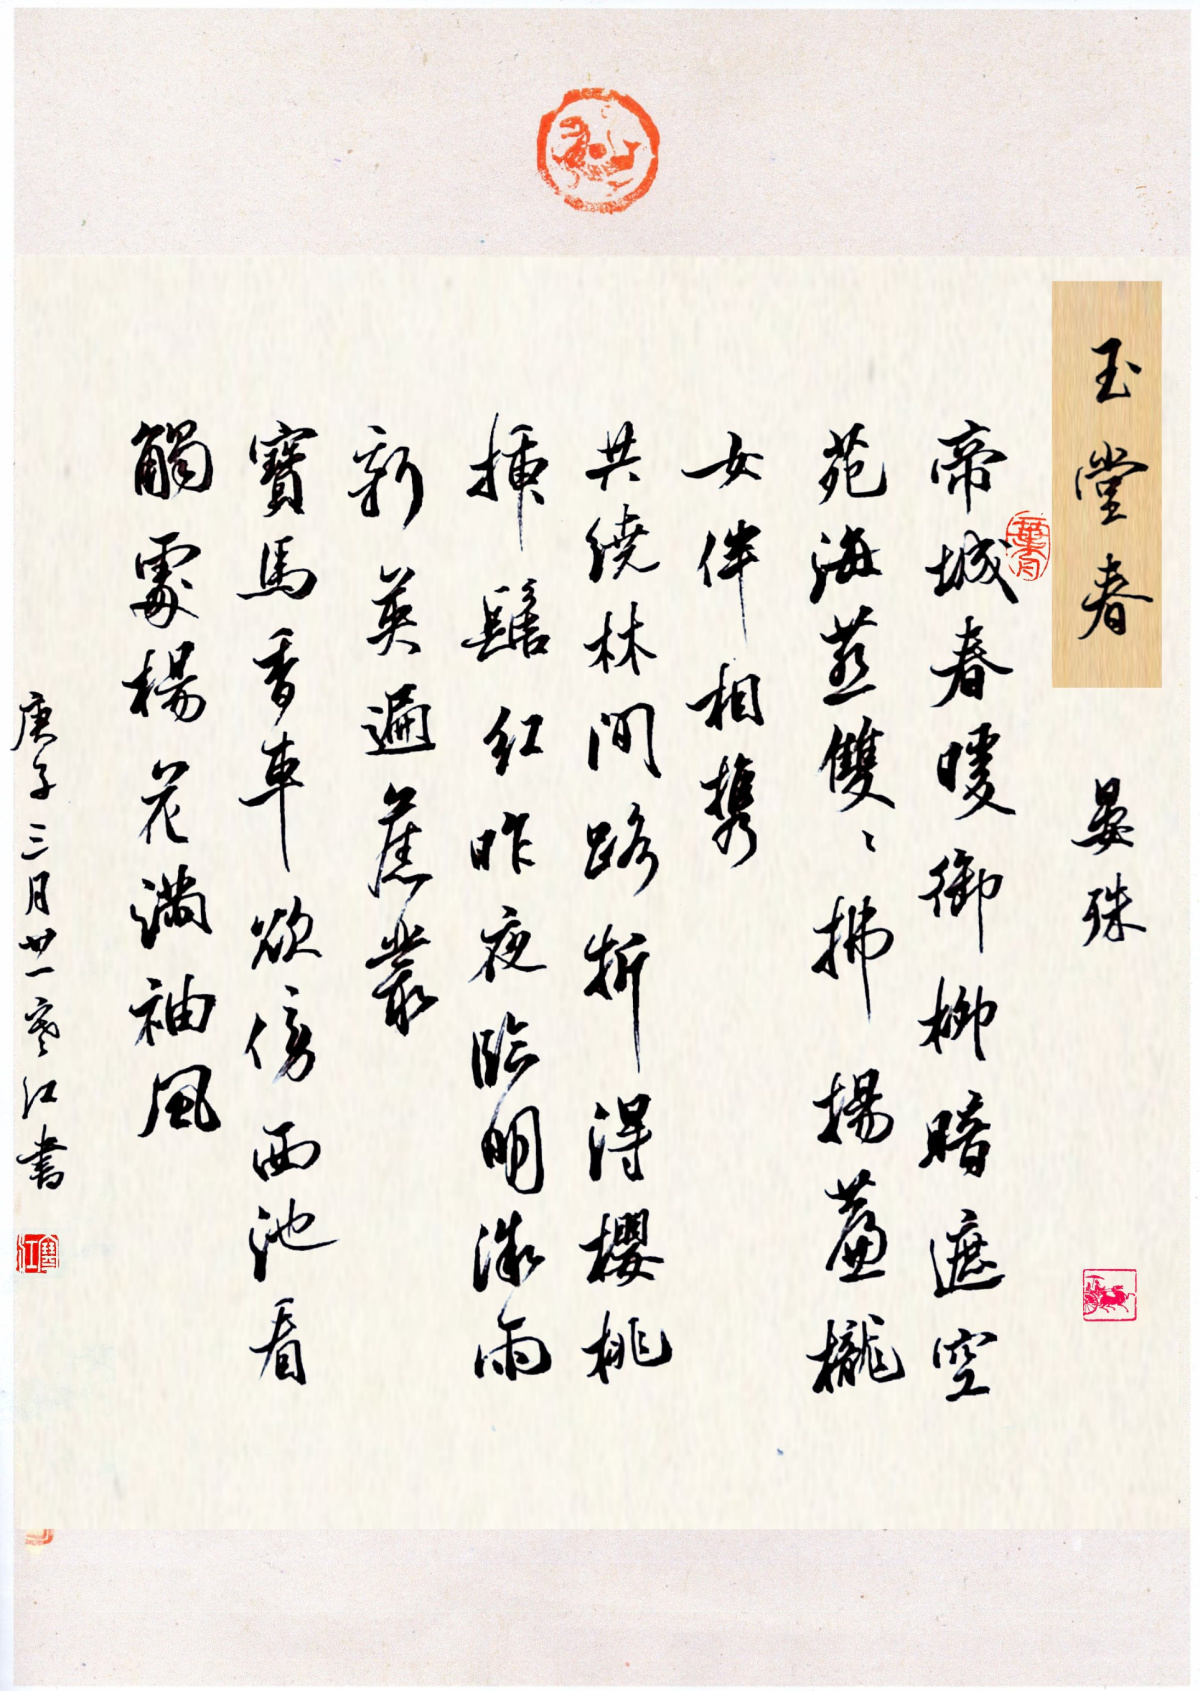 玉堂春
晏殊
帝城春暖御柳暗遮空
苑海燕雙〻拂揚簾櫳
女伴相携
共繞林間路折得櫻桃
插髻紅昨夜臨明微雨
新英遍舊叢
寶馬香車欲傍西池看
觸處楊花滿袖風
庚子三月廿一寒江書
寒江